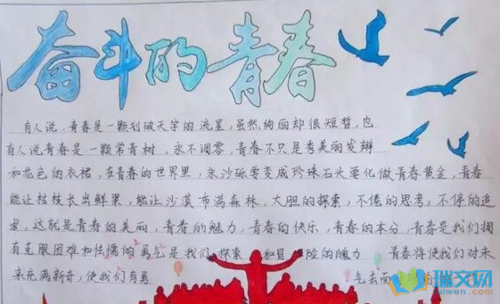 奋斗的青春
有人说,青春是一颗划破天宇的流星,虽然绚丽却很短暂,也
有人说青春是一颗常青树,永不调零,青春不只是秀美丽发辫
和花色的衣裙,在青春的世界里,永沙砾要变成珍珠石大要化做青春黄金,青春
能让枯枝长出鲜果,能让沙漠布满森林,大胆的探索,不倦的思考,不停的追
求,这就是青春的美丽,青春的魅力,青春的快乐,青春的本分,青春是我们拥
有克服困难和怯懦的勇气是我们探索 和冒 险的魄力 青春将使我们对未
来充满新奇,使我们有勇 气去面
瑞文网
ruiwen.com